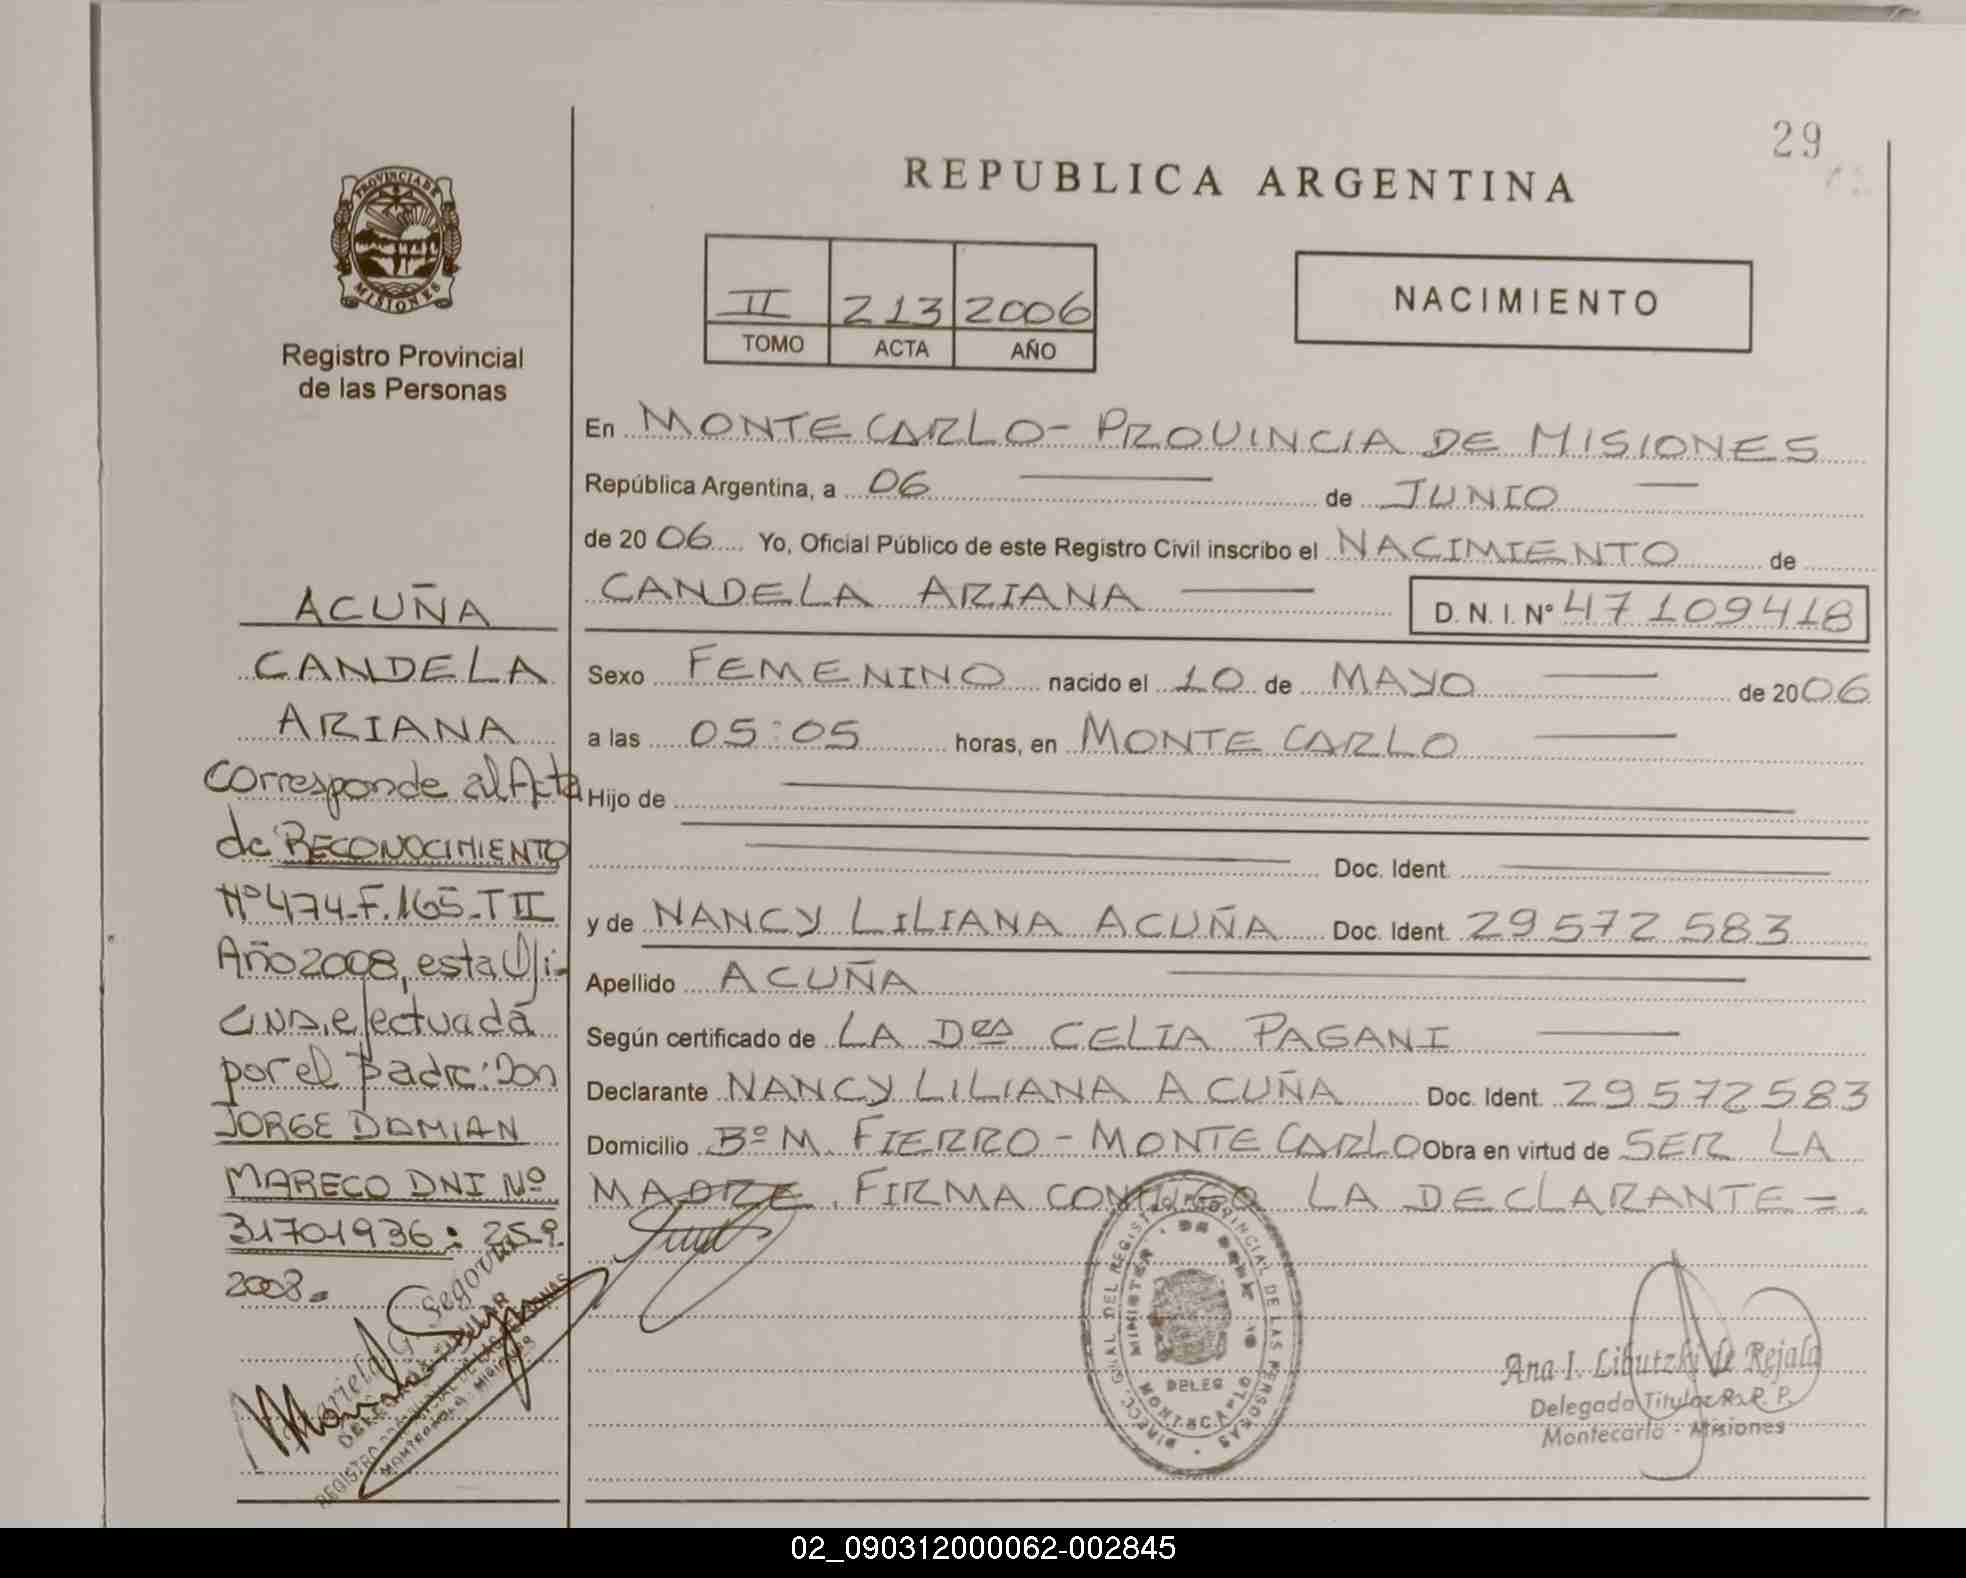 29
REPUBLICA ARGENTINA
PROVINCIA DE
MISIONES
Registro Provincial
de las Personas
II 213 2006
TOMO ACTA AÑO
NACIMIENTO
En MONTECARLO - PROVINCIA DE MISIONES
República Argentina, a 06 de JUNIO
de 2006 Yo, Oficial Público de este Registro Civil inscribo el NACIMIENTO de
CANDELA ARIANA D. N. I. Nº 47109418
Sexo FEMENINO nacido el 10 de MAYO de 2006
a las 05:05 horas, en MONTE CARLO
Hijo de
Doc. Ident.
y de NANCY LILIANA ACUÑA Doc. Ident. 29572583
Apellido ACUÑA
Según certificado de LA Dra CELIA PAGANI
Declarante NANCY LILIANA ACUÑA Doc. Ident. 29572583
Domicilio Bº M. FIERRO - MONTE CARLO Obra en virtud de SER LA
MADRE. FIRMA CONMIGO LA DECLARANTE =.
ACUÑA
CANDELA
ARIANA
Corresponde al Acta
de RECONOCIMIENTO
Nº 474-F.165-TII
Año 2008, esta Ofi-
cina, efectuada
por el padre: Don
JORGE DAMIAN
MARECO DNI Nº
31701936: 25.9.
2008.
Mariela G. Segovia
DELEGADA TITULAR
REGISTRO PROVINCIAL DE LAS PERSONAS
MONTECARLO - MISIONES
DIRECC. GRAL DEL REGISTRO PROVINCIAL DE LAS PERSONAS
DELEG
MONTECARLO
Ana I. Libutzki de Rejala
Delegada Titular R. P. P.
Montecarlo - Misiones
02_090312000062-002845